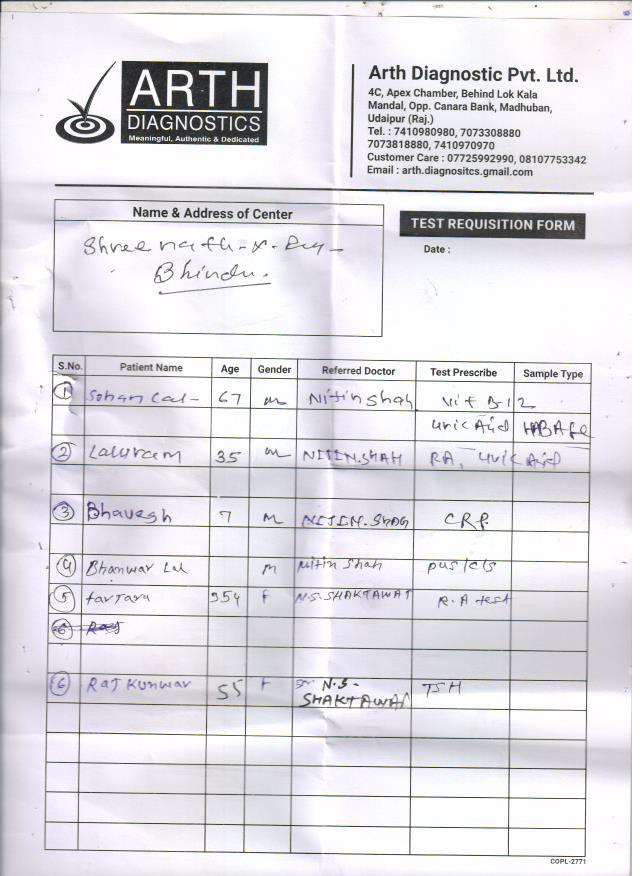 ARTH
DIAGNOSTICS
Meaningful, Authentic & Dedicated
Arth Diagnostic Pvt. Ltd.
4C, Apex Chamber, Behind Lok Kala
Mandal, Opp. Canara Bank, Madhuban,
Udaipur (Raj.)
Tel. : 7410980980, 7073308880
7073818880, 7410970970
Customer Care : 07725992990, 08107753342
Email : arth.diagnositcs.gmail.com
Name & Address of Center
Shreenath-x-Ray-
TEST REQUISITION FORM
Date :
S.No. Patient Name Age Gender Referred Doctor Test Prescribe Sample Type
1 Sohan Lal- 67 m Nitin Shah Vit B-12
Uric Acid
2 Laluram 35 m NITIN.SHAH RA, Uric Acid
3 Bhavesh 7 M NITIN. CRP.
4 Bhanwar Lal M Nitin Shah pus/c/s
5 F N.S. SHAKTAWAT R.A test
6
6 RAJ KUNWAR 55 F N.S- TSH
SHAKTAWAT
COPL-2771